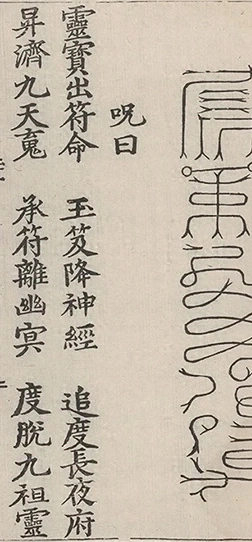 呪曰
靈寶出符命 玉笈降神經 追度長夜府
昇濟九天䰟 承符離幽冥 度脫九祖靈